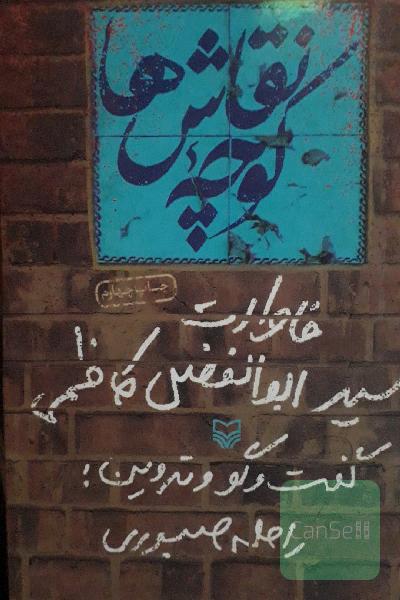 کوچه نقاش‌ها
چاپ چهارم
خاطرات
سید ابوالفضل کاظمی
گفت و گو و تدوین:
راحله صبوری
CanSell